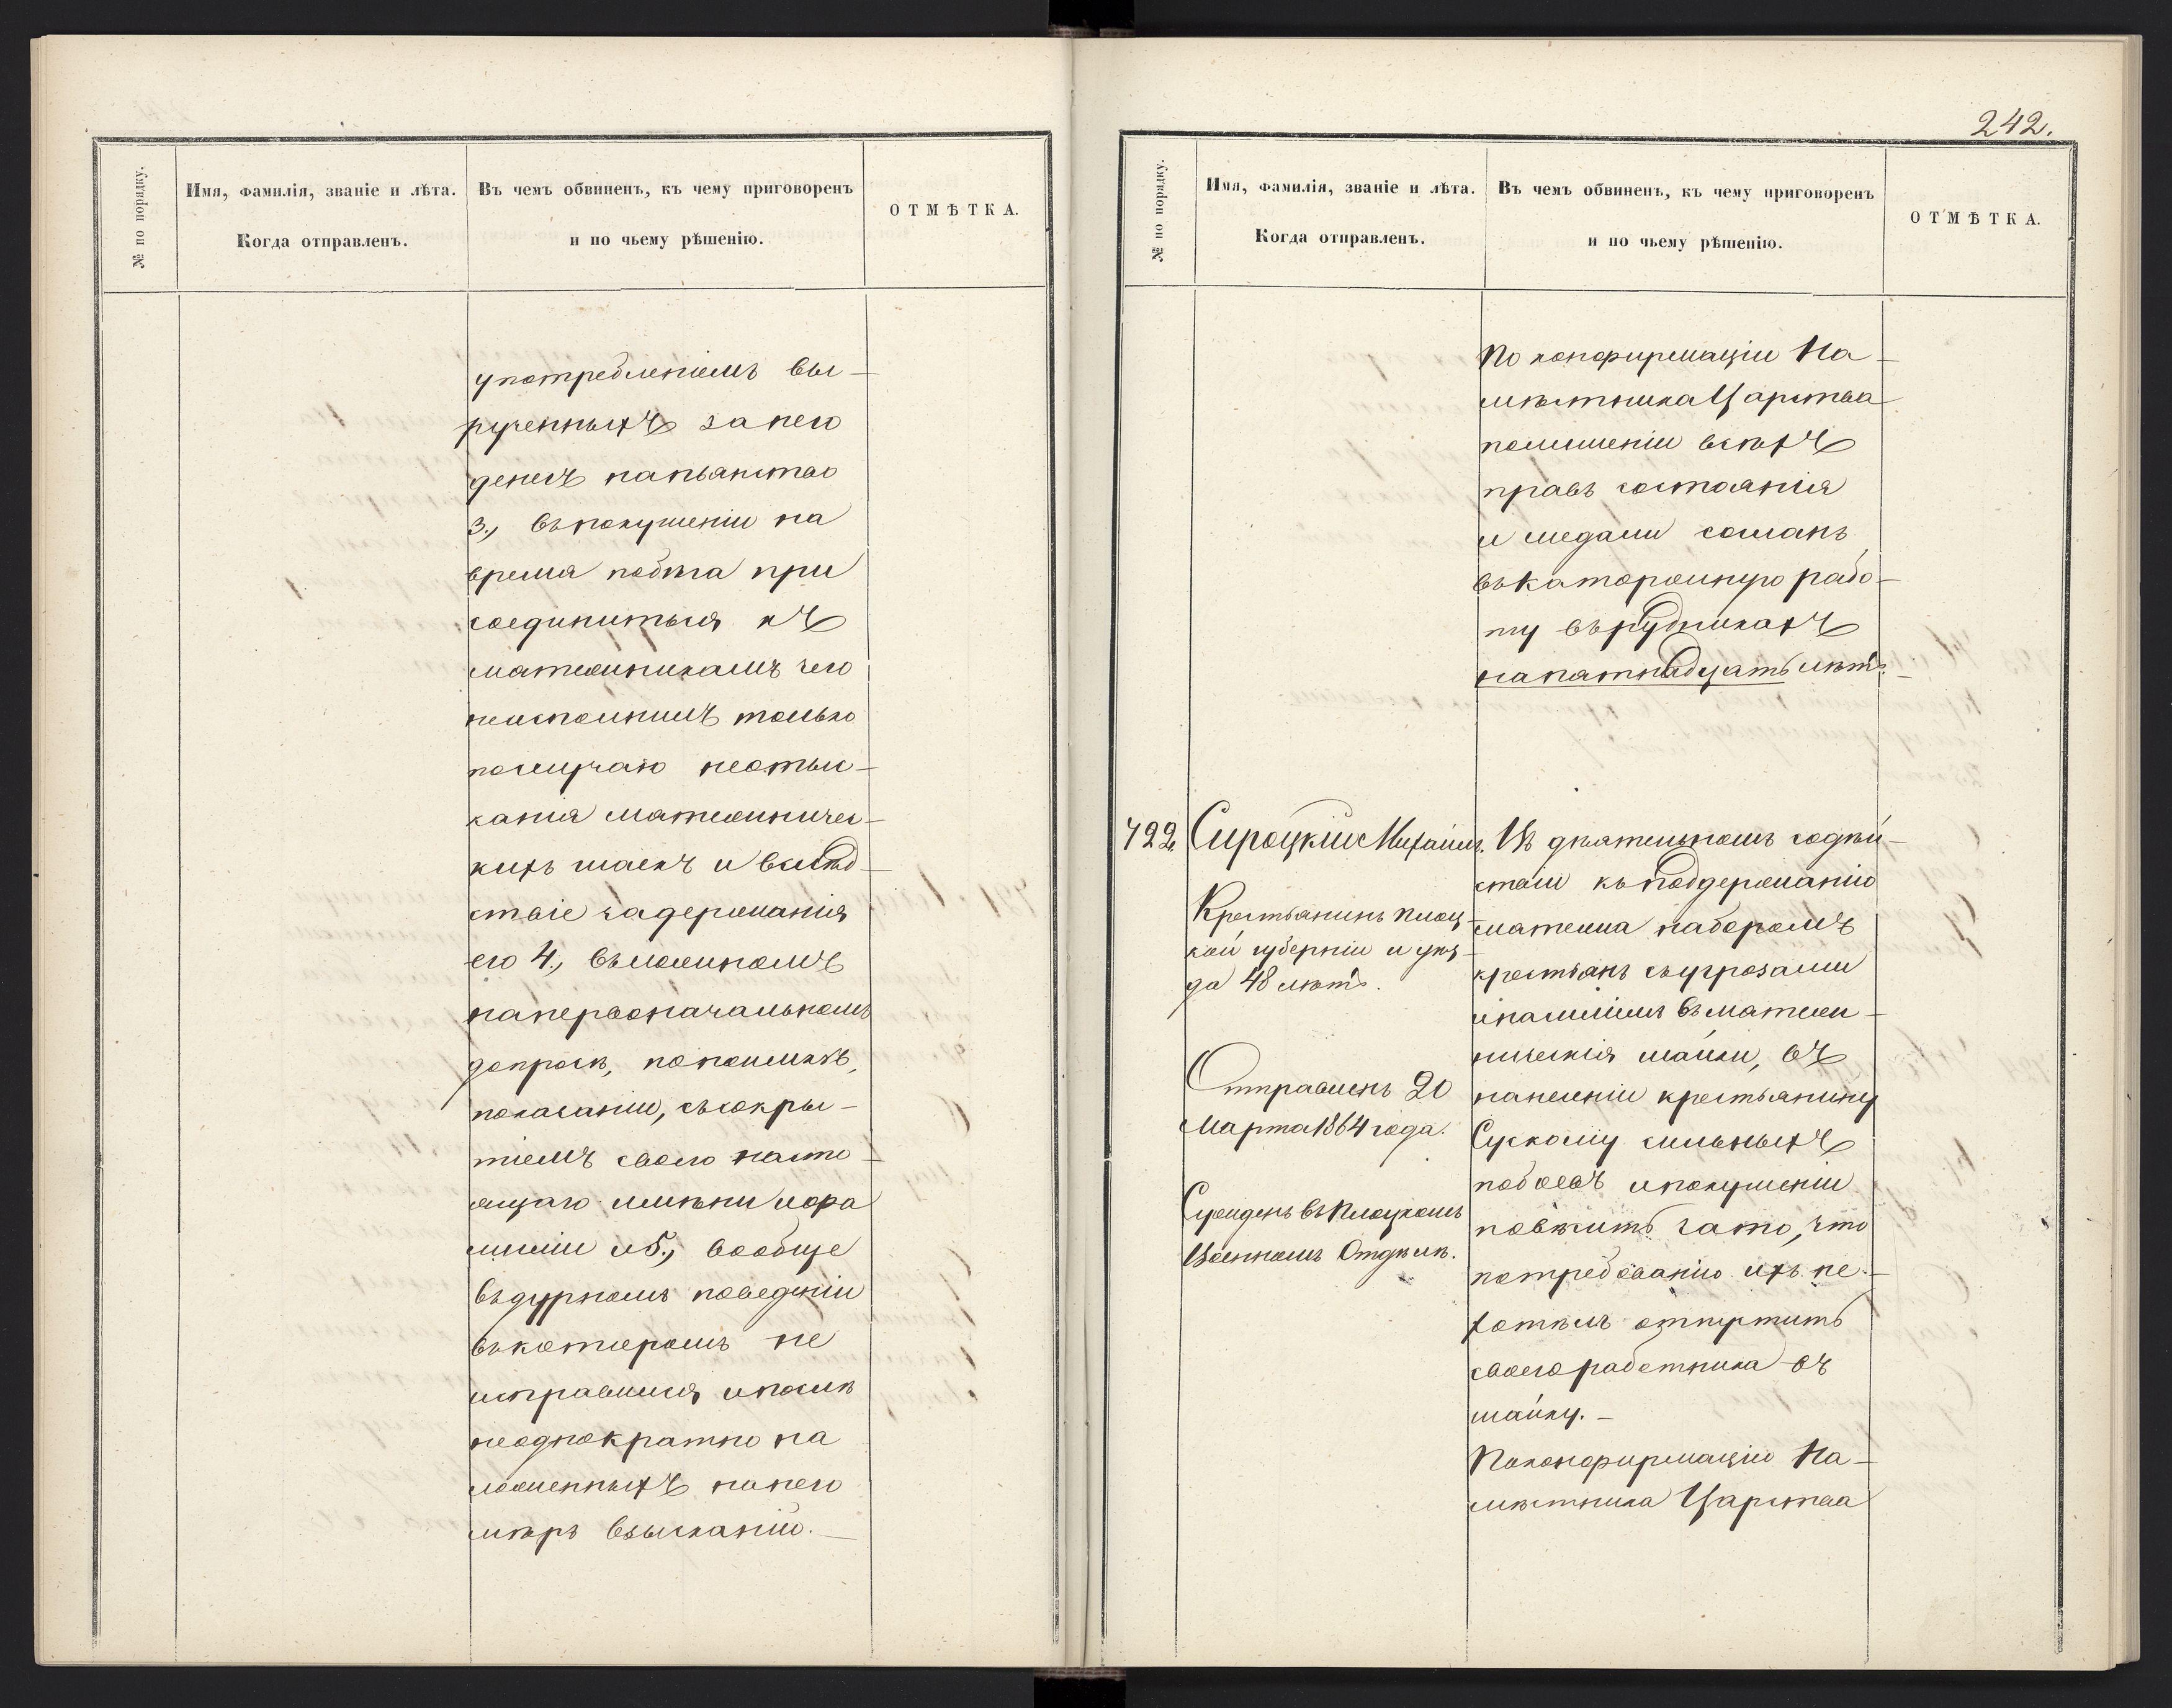 № по порядку.
Имя, фамилія, званіе и лѣта.
Когда отправленъ.
Въ чемъ обвиненъ, къ чему приговоренъ
и по чьему рѣшенію.
ОТМѢТКА.
употребленіемъ вы-
рученныхъ за него
денегъ на пьянство
3., въ покушеніи на
время побѣга при
соединиться къ
мятежникамъ чего
неисполнилъ только
послучаю неотыс-
канія мятежничес-
кихъ шаекъ и вслѣд-
ствіе задержанія
его 4., въ ложномъ
на первоначальномъ
допросѣ, по поимкѣ,
показаніи, съ сокры-
тіемъ своего насто-
ящаго имѣни и фа
миліи и 5., вообще
въ дурномъ поведеніи
въ котором не
исправился и послѣ
неоднократно на
ложенныхъ на него
мѣръ взысканій.-
242.
№ по порядку.
Имя, фамилія, званіе и лѣта.
Когда отправленъ.
Въ чемъ обвиненъ, къ чему приговоренъ
и по чьему рѣшенію.
ОТМѢТКА.
По конфирмаціи На-
мѣстника Царства
по лишеніи всѣхъ
правъ состоянія
и медали сосланъ
въ каторжную рабо-
ту въ рудникахъ
на пятнадцать лѣтъ.
722. Сироцкій Михаилъ.
Крестьянинъ Плоц-
кой губерніи и уѣз-
да 48 лѣтъ.
Отправленъ 20
Марта 1864 года.
Сужденъ въ Плоцкомъ
Военномъ Отдѣлѣ.
Въ дѣятельномъ содѣй-
ствіи къ поддержанію
мятежа наборомъ
крестьянъ съ угрозами
и насиліемъ въ мятеж-
ническія шайки, въ
нанесеніи крестьянину
Сускому сильныхъ
побоевъ и покушеніи
повѣсить за то, что
по требованію ихъ не-
хотѣлъ отпустить
своего работника въ
шайку.-
По конфирмаціи На-
мѣстника Царства